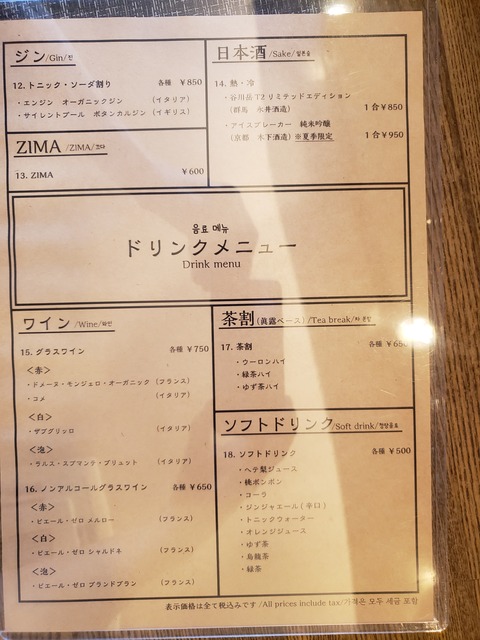 ジン/Gin/진
12. トニック・ソーダ割り 各種 ￥850
・エンジン オーガニックジン (イタリア)
・サイレントプール ボタンカルジン (イギリス)
ZIMA /ZIMA/
13. ZIMA ￥600
日本酒 /Sake/일본술
14. 熱・冷
・谷川岳 T2 リミテッドエディション
(群馬 永井酒造) 1合￥850
・アイスブレーカー 純米吟醸
(京都 木下酒造) ※夏季限定 1合￥950
음료 메뉴
ドリンクメニュー
Drink menu
ワイン /Wine/와인
15. グラスワイン 各種 ￥750
＜赤＞
・ドメーヌ・モンジェロ・オーガニック (フランス)
・コメ (イタリア)
＜白＞
・ザブグリッロ (イタリア)
＜泡＞
・ラルス・スプマンテ・ブリュット (イタリア)
16. ノンアルコールグラスワイン 各種 ￥650
＜赤＞
・ピエール・ゼロ メルロー (フランス)
＜白＞
・ピエール・ゼロ シャルドネ (フランス)
＜泡＞
・ピエール・ゼロ ブランドブラン (フランス)
茶割 (眞露ベース) /Tea break/차
17. 茶割 各種 ￥650
・ウーロンハイ
・緑茶ハイ
・ゆず茶ハイ
ソフトドリンク /Soft drink/청량음료
18. ソフトドリンク 各種 ￥500
・ヘテ梨ジュース
・桃ボンボン
・コーラ
・ジンジャエール (辛口)
・トニックウォーター
・オレンジジュース
・ゆず茶
・烏龍茶
・緑茶
表示価格は全て税込みです /All prices include tax/가격은 모두 세금 포함